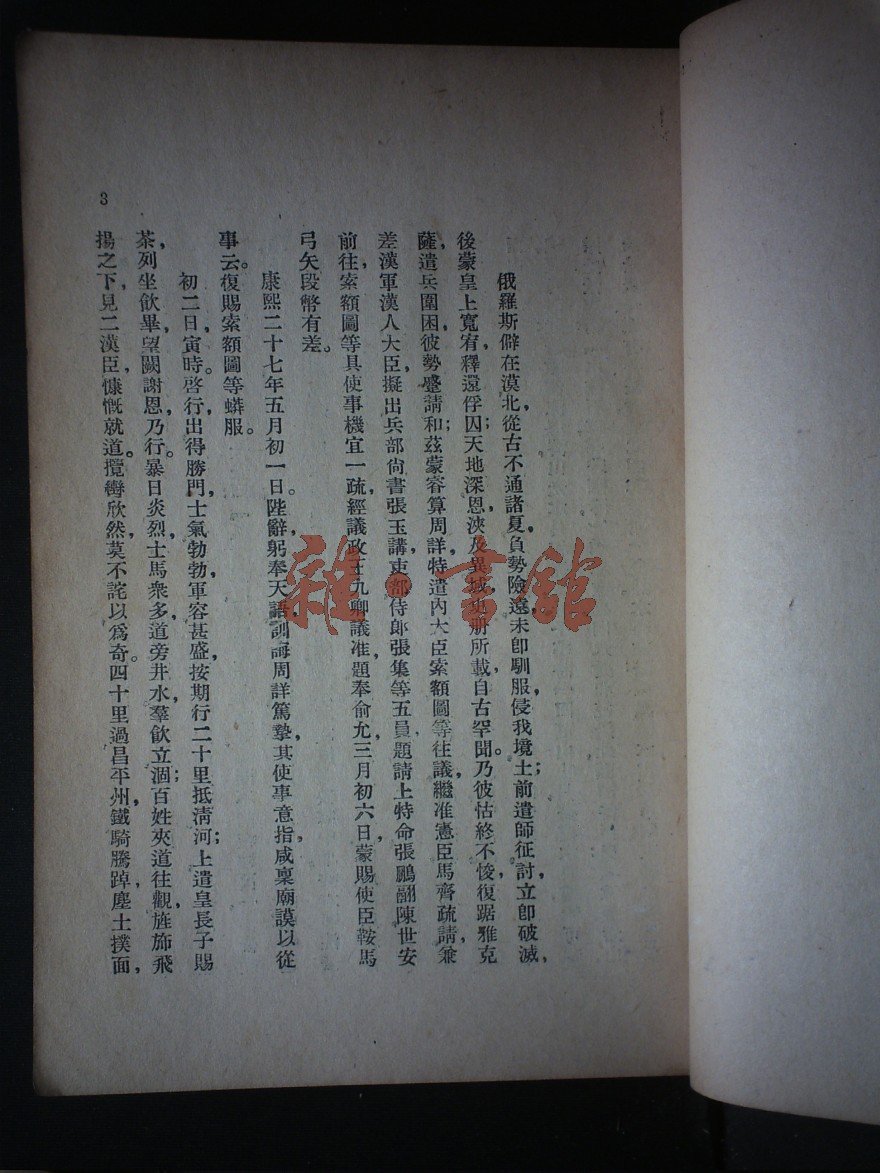 俄羅斯僻在漠北，從古不通諸夏，負勢險遠，未卽馴服，侵我境土；前遣師征討，立卽破滅，
後蒙皇上寬宥，釋還俘囚；天地深恩，浹及異域，史册所載，自古罕聞。乃彼怙終不悛，復踞雅克
薩，遣兵圍困，彼勢蹙請和；茲蒙睿算周詳，特遣內大臣索額圖等往議，繼准憲臣馬齊疏請，兼
差漢軍漢人大臣，擬出兵部尙書張玉講、吏部侍郎張集等五員，題請上特命張鵬翮、陳世安
前往，索額圖等具使事機宜一疏，經議政王九卿議准，題奉俞允，三月初六日，蒙賜使臣鞍馬
弓矢段幣有差。
康熙二十七年五月初一日。陛辭，躬奉天語，訓誨周詳篤摯，其使事意指，咸稟廟謨以從
事云。復賜索額圖等蟒服。
初二日，寅時。啓行，出得勝門，士氣勃勃，軍容甚盛，按期行二十里，抵淸河；上遣皇長子賜
茶，列坐飮畢，望闕謝恩，乃行。暴日炎烈，士馬衆多，道旁井水，羣飮立涸；百姓夾道往觀，旌旆飛
揚之下，見二漢臣，慷慨就道。攬轡欣然，莫不詫以爲奇。四十里過昌平州，鐵騎騰踔，塵土撲面，
3
雜·書館